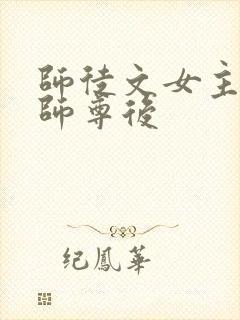 師徒文女主
師尊後
纪鳳華